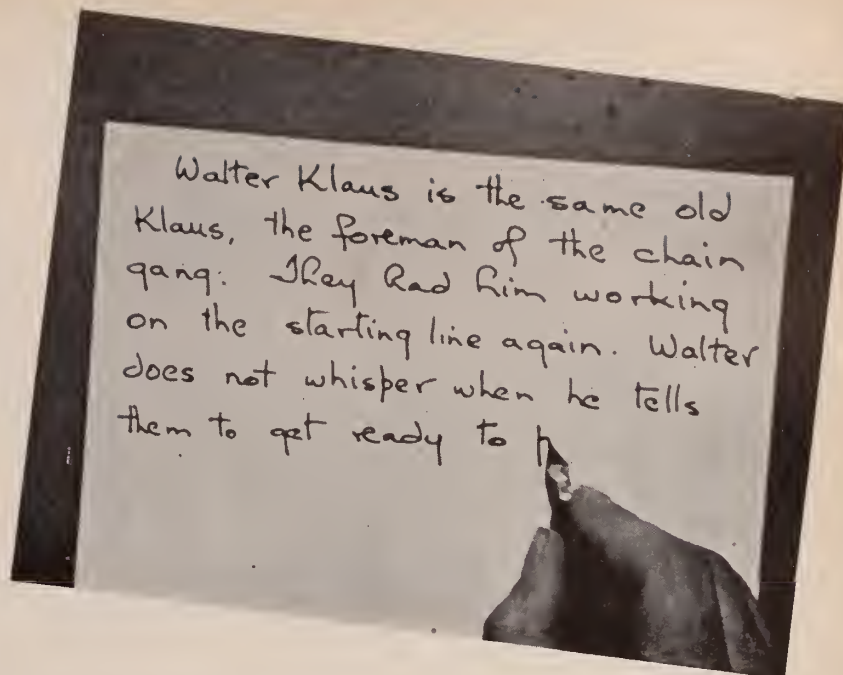 Walter Klaus is the same old
Klaus, the foreman of the chain
gang. They had him working
on the starting line again. Walter
does not whisper when he tells
them to get ready to